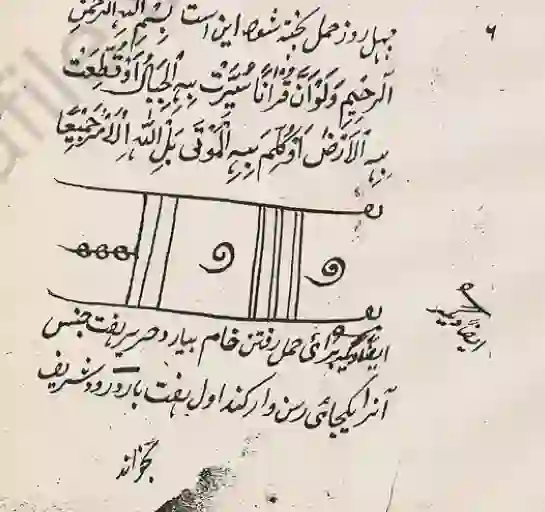 ۶
چهل روز حمل پخته شود این است بِسْمِ اللهِ الرَّحْمٰنِ
الرَّحِيمِ وَلَوْ اَنَّ قُرْاٰنًا سُيِّرَتْ بِهِ الْجِبَالُ اَوْ قُطِّعَتْ
بِهِ الْاَرْضُ اَوْ كُلِّمَ بِهِ الْمَوْتٰى بَلْ لِلّٰهِ الْاَمْرُ جَمِيْعًا
ایضاً دیگر برائی حمل رفتن خام بیارد حریر هفت جنس
آنرا یکجائی رسن وار کند اول هفت بار درود شریف
بخواند
ایضاً دیگر